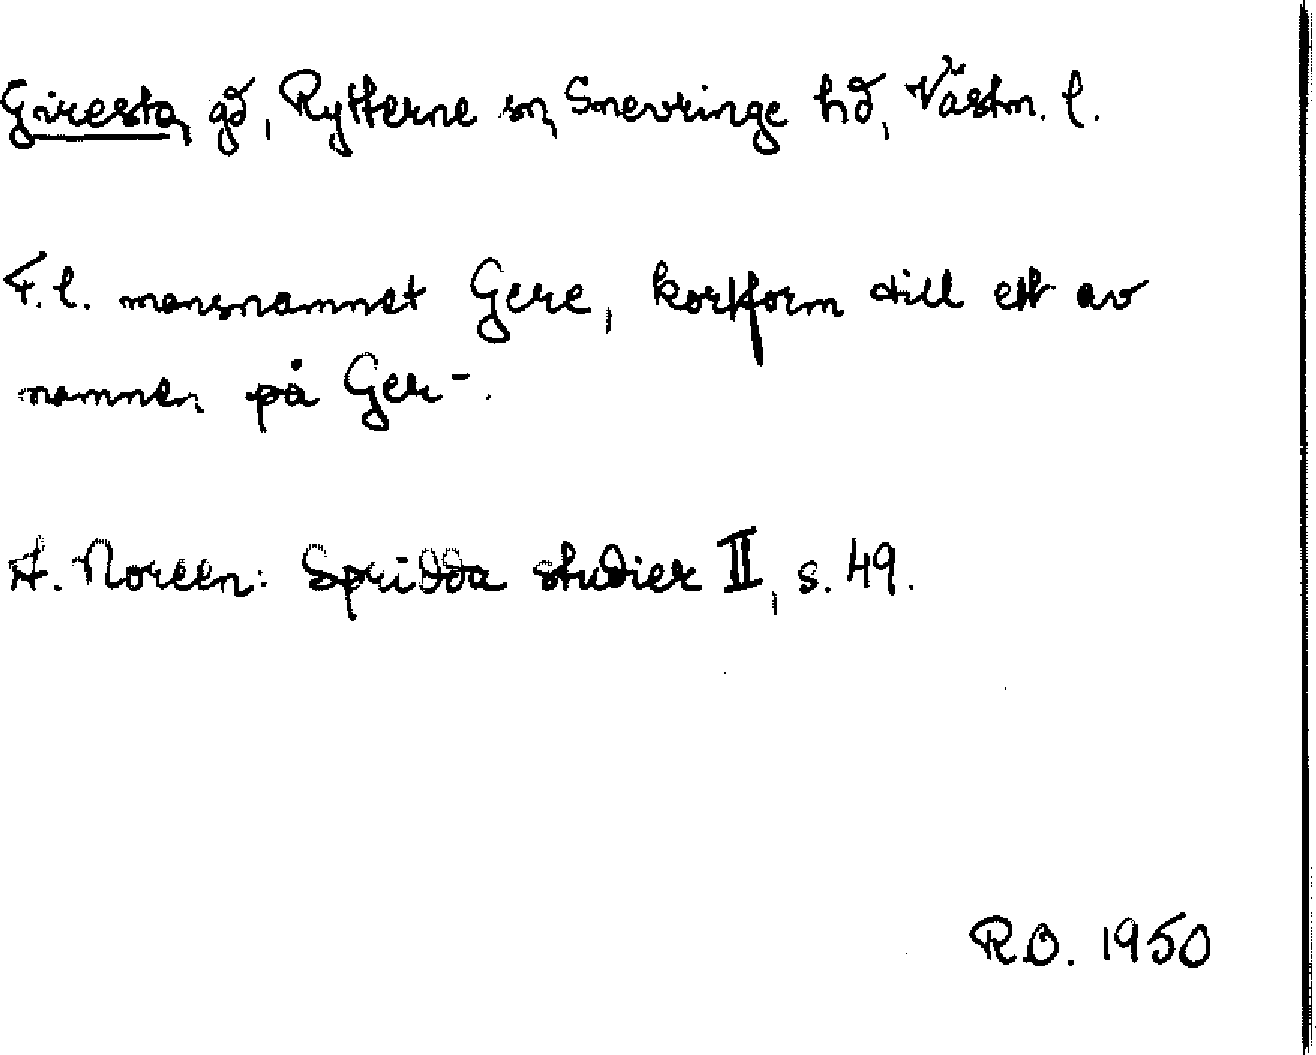 Giresta, gd, Rytterne sn, Snevringe hd, Västm. l.
F.l. mansnamnet Gere, kortform till ett av
namnen på Ger-.
A. Noreen: Spridda studier II, s. 49.
R.O. 1950